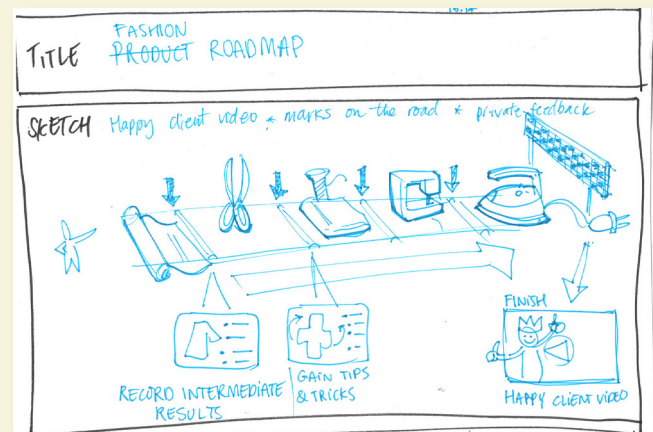 FASHION
TITLE PRODUCT ROADMAP
SKETCH Happy client video * marks on the road * private feedback
RECORD INTERMEDIATE
RESULTS
GAIN TIPS
& TRICKS
FINISH
HAPPY CLIENT VIDEO